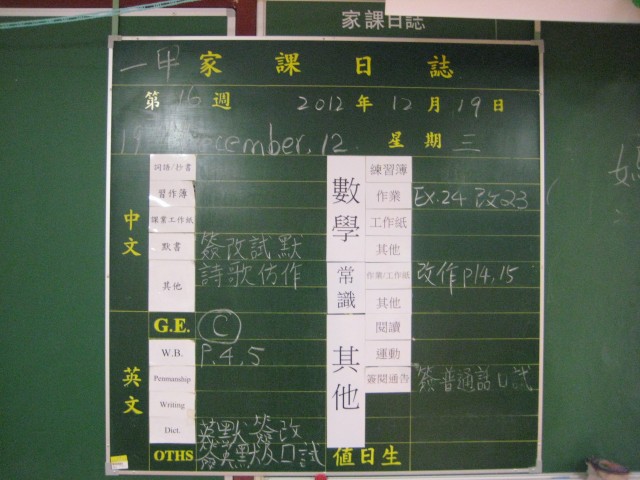 家課日誌
一甲 家課日誌
第 16 週 2012 年 12 月 19 日
19 December, 12 星期 三
中文
詞語/抄書
習作簿
課業工作紙
默書 簽改試默
其他 詩歌仿作
英文
G.E. C
W.B. P.4,5
Penmanship
Writing
Dict. 英默簽改
OTHS
數學
練習簿
作業 EX.24 改23
工作紙
其他
常識
作業/工作紙 改作P14,15
其他
其他
閱讀
運動
簽閱通告 簽普通話口試
值日生